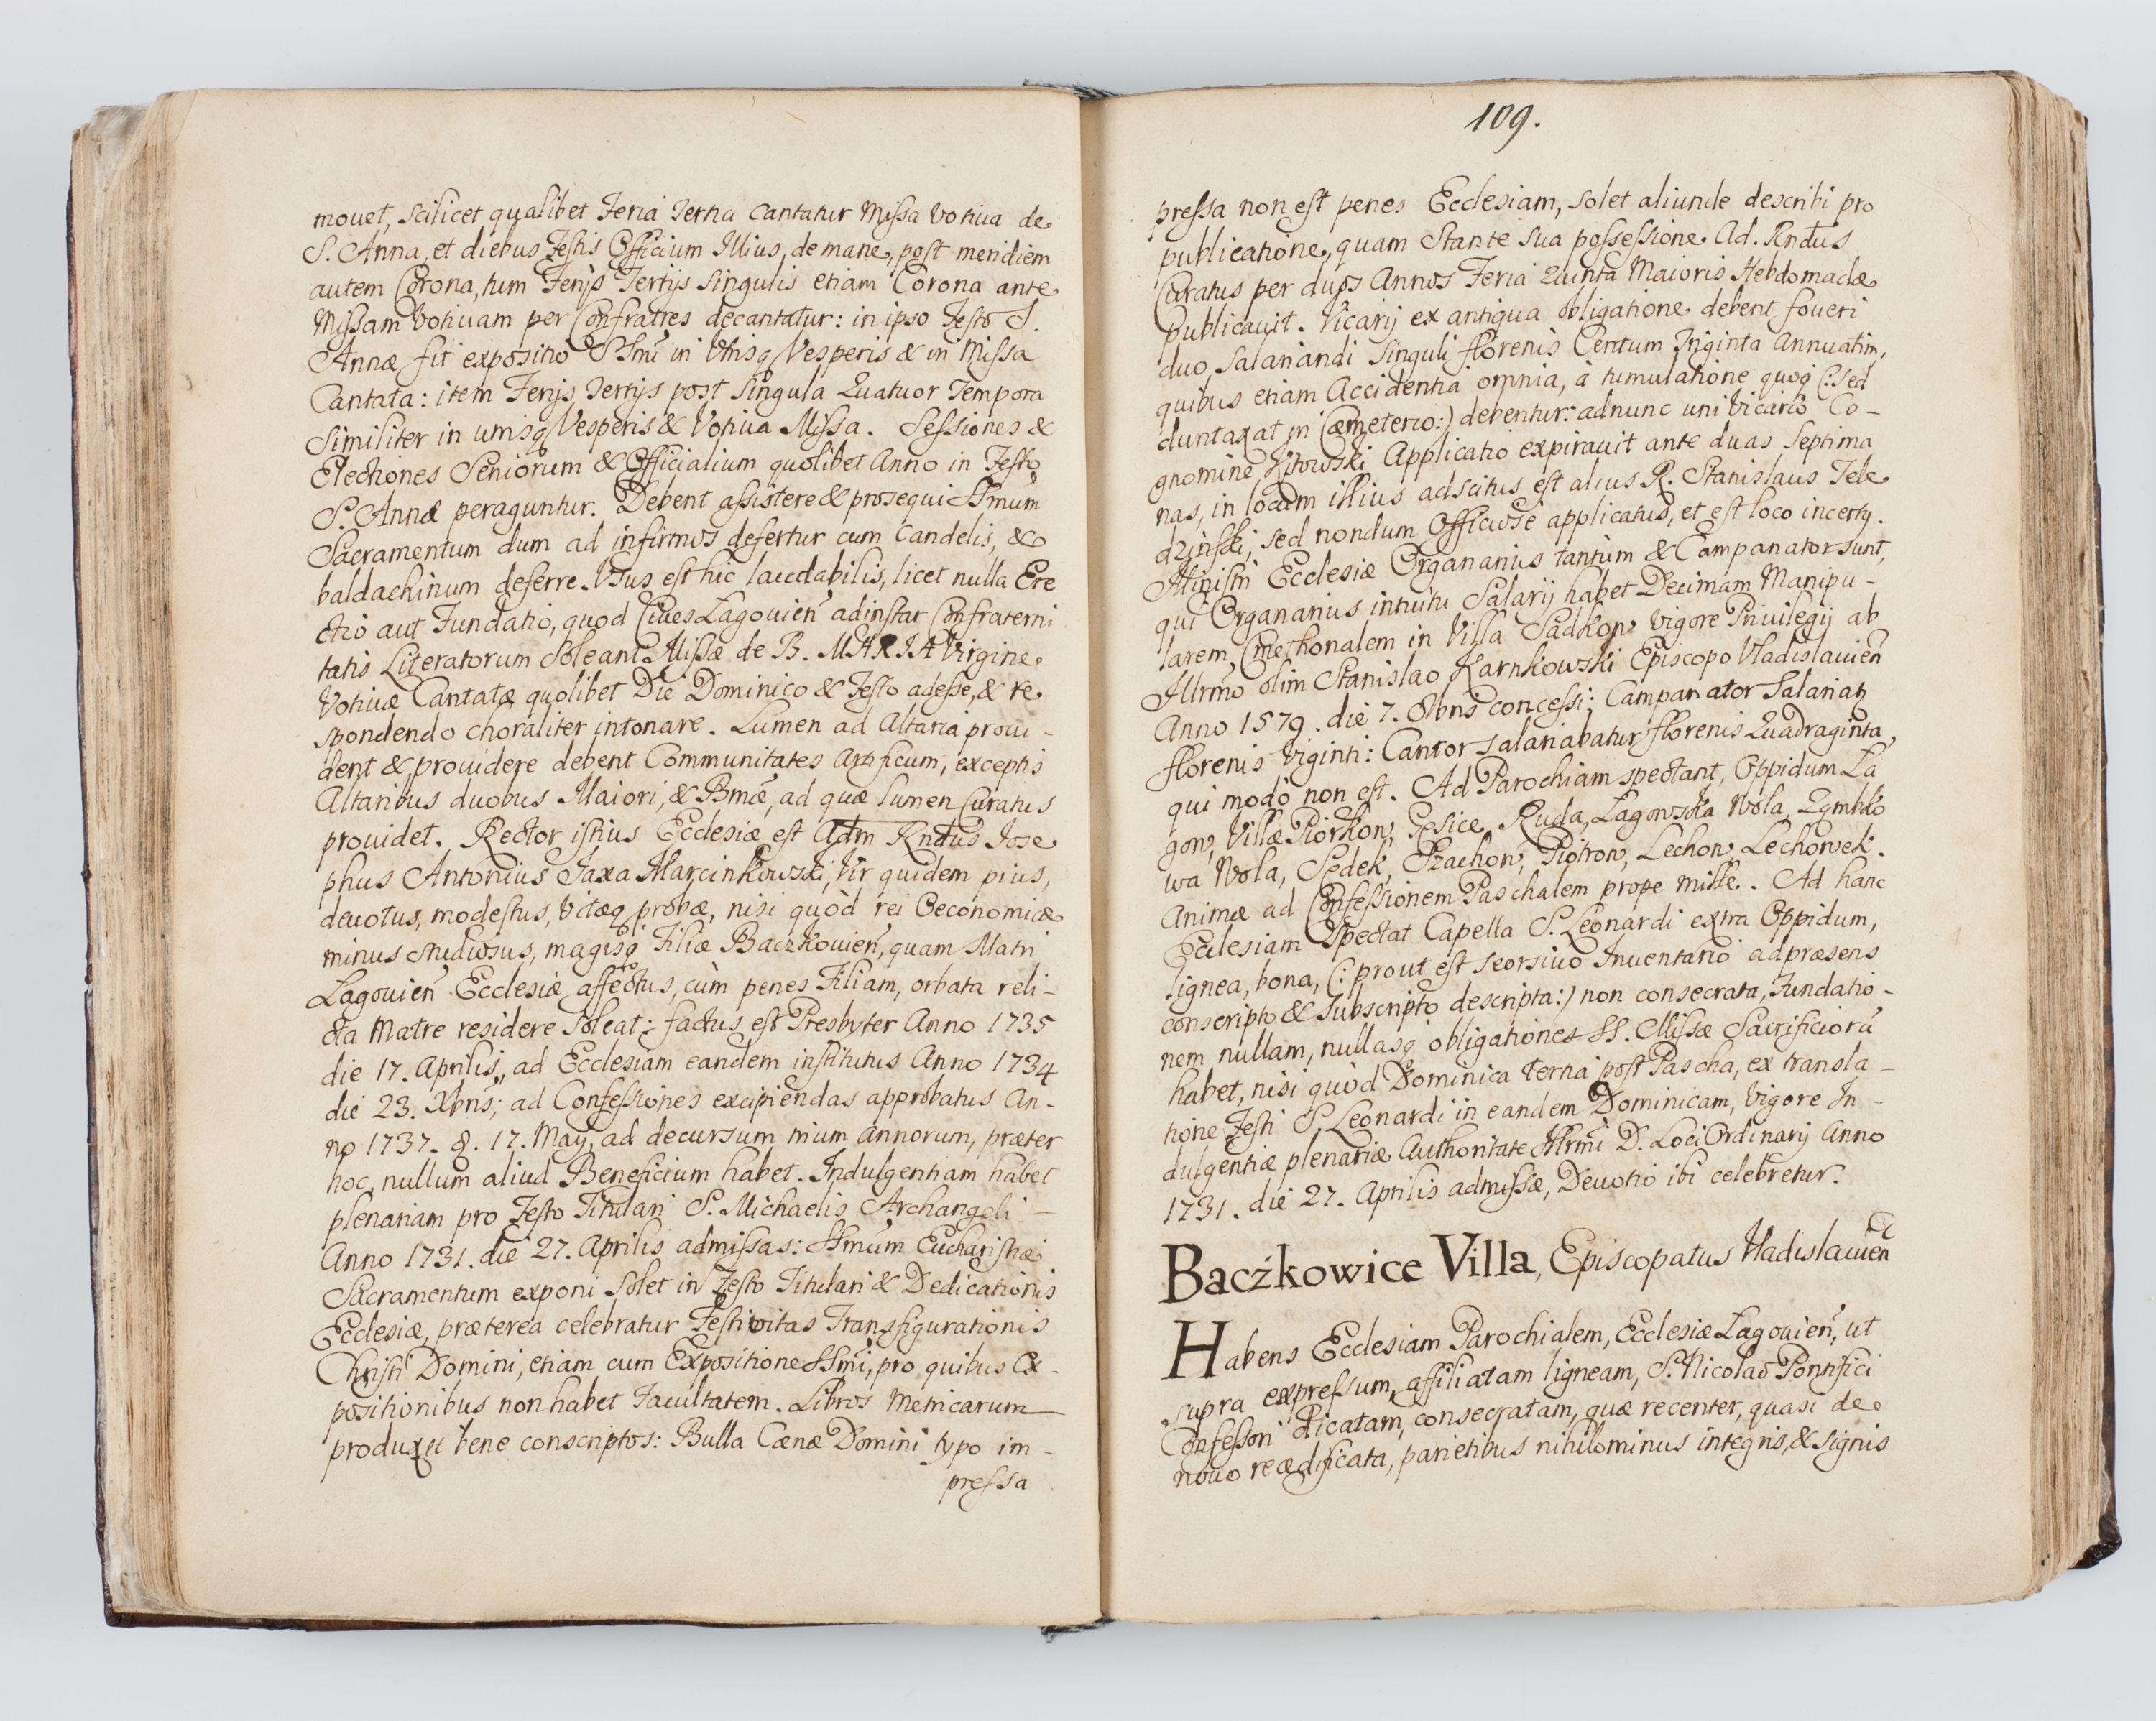 mouet, scilicet qualibet Feria Tertia Cantatur Missa Votiua de
S. Anna, et diebus Festis Officium Illius, de mane, post meridiem
autem Corona, tum Ferijs Tertijs singulis etiam Corona ante
Missam Votiuam per Confratres decantatur: in ipso Festo S.
Annæ fit expositio SSmi in Vtrisq Vesperis & in Missa
Cantata: item Ferijs Tertijs post singula Quatuor Tempora
similiter in utrisq Vesperis & Votiua Missa. Sessiones &
Electiones Seniorum & Officialium quolibet Anno in Festo
S. Annæ peraguntur. Debent assistere & prosequi SSmum
Sacramentum dum ad infirmos defertur cum Candelis, &
baldachinum deferre. Vsus est hic laudabilis, licet nulla Ere
ctio aut Fundatio, quod Ciues Lagouien adinstar Confraterni
tatis Literatorum soleant Missæ de B. MARIA Virgine
Votiuæ Cantatæ quolibet Die Dominico & Festo adesse, & re
spondendo choraliter intonare. Lumen ad Altaria proui-
dent & prouidere debent Communitates Artificum, exceptis
Altaribus duobus Maiori, & Bmæ, ad quæ lumen Curatus
prouidet. Rector istius Ecclesiæ est Adm Rndus Jose
phus Antonius Jaxa Marcinkowski, Vir quidem pius,
deuotus, modestus, Vitæq probæ, nisi quòd rei Oeconomicæ
minus studiosus, magisq Filiæ Baczkouien, quam Matri
Lagouien Ecclesiæ affectus, cùm penes Filiam, orbata reli-
cta Matre residere soleat; factus est Presbyter Anno 1735
die 17. Aprilis, ad Ecclesiam eandem institutus Anno 1734
die 23. Xbris; ad Confessiones excipiendas approbatus An-
no 1737. d. 17. Maij, ad decursum trium annorum, præter
hoc, nullum aliud Beneficium habet. Indulgentiam habet
plenariam pro Festo Titulari S. Michaelis Archangeli -
Anno 1731. die 27. Aprilis admissas: SSmum Eucharistiæ
Sacramentum exponi solet in Festo Titulari & Dedicationis
Ecclesiæ, præterea celebratur Festivitas Transfigurationis
Christi Domini, etiam cum Expositione SSmi, pro quibus Ex-
positionibus non habet Facultatem. Libros Metricarum
produxit bene conscriptos: Bulla Cænæ Domini typo im-
pressa
109.
pressa non est penes Ecclesiam, solet aliunde describi pro
publicatione, quam stante sua possessione Ad. Rndus
Curatus per duos Annos Feria Quinta Maioris Hebdomadæ
publicauit. Vicarij ex antiqua obligatione debent foueri
duo, salariandi singuli florenis Centum Triginta annuatim,
quibus etiam Accidentia omnia, à tumulatione quoq (:sed
duntaxat in Cæmeterio:) debentur: adnunc uni Vicario Co-
gnomine Kitowski Applicatio expirauit ante duas Septima
nas, in locum illius adscitus est alius R. Stanislaus Tele
dzinski, sed nondum Officiosè applicatus, et est loco incerty.
Ministri Ecclesiæ Organarius tantùm & Campanator sunt,
qui Organarius intuitu Salarij habet Decimam Manipu-
larem, Cmethonalem in Villa Sadkow vigore Priuilegij ab
Illrmo olim Stanislao Karnkowski Episcopo Vladislauien
Anno 1579. die 7. 8bris concessi; Campanator salariat
florenis Viginti: Cantor salariabatur florenis Quadraginta,
qui modò non est. Ad Parochiam spectant, Oppidum La
gow, Villæ Piorkow, Gęsice, Ruda, Lagowska Wola, Zymbko
wa Wola, Sedek, Płzachow, Piotrow, Lechow Lechowek.
Animæ ad Confessionem Paschalem prope mille. Ad hanc
Ecclesiam spectat Capella S. Leonardi extra Oppidum,
lignea, bona, (:prout est seorsiuo Inuentario adpræsens
conscripto & Subscripto descripta:) non consecrata, Fundatio-
nem nullam, nullasq obligationes SS. Missæ Sacrificiorũ
habet, nisi quòd Dominica tertia post Pascha, ex transla-
tione Festi S. Leonardi in eandem Dominicam, Vigore In-
dulgentiæ plenariæ Authoritate Illrmi D. Loci Ordinarij Anno
1731. die 27. Aprilis admissæ, Deuotio ibi celebretur.
Baczkowice Villa, Episcopatus Vladislauien
Habens Ecclesiam Parochialem, Ecclesiæ Lagouien, ut
supra expressum, affiliatam ligneam, S. Nicolao Pontifici
Confessori Dicatam, consecratam, quæ recenter, quasi de
nouo reædificata, parietibus nihilominus integris, & signis